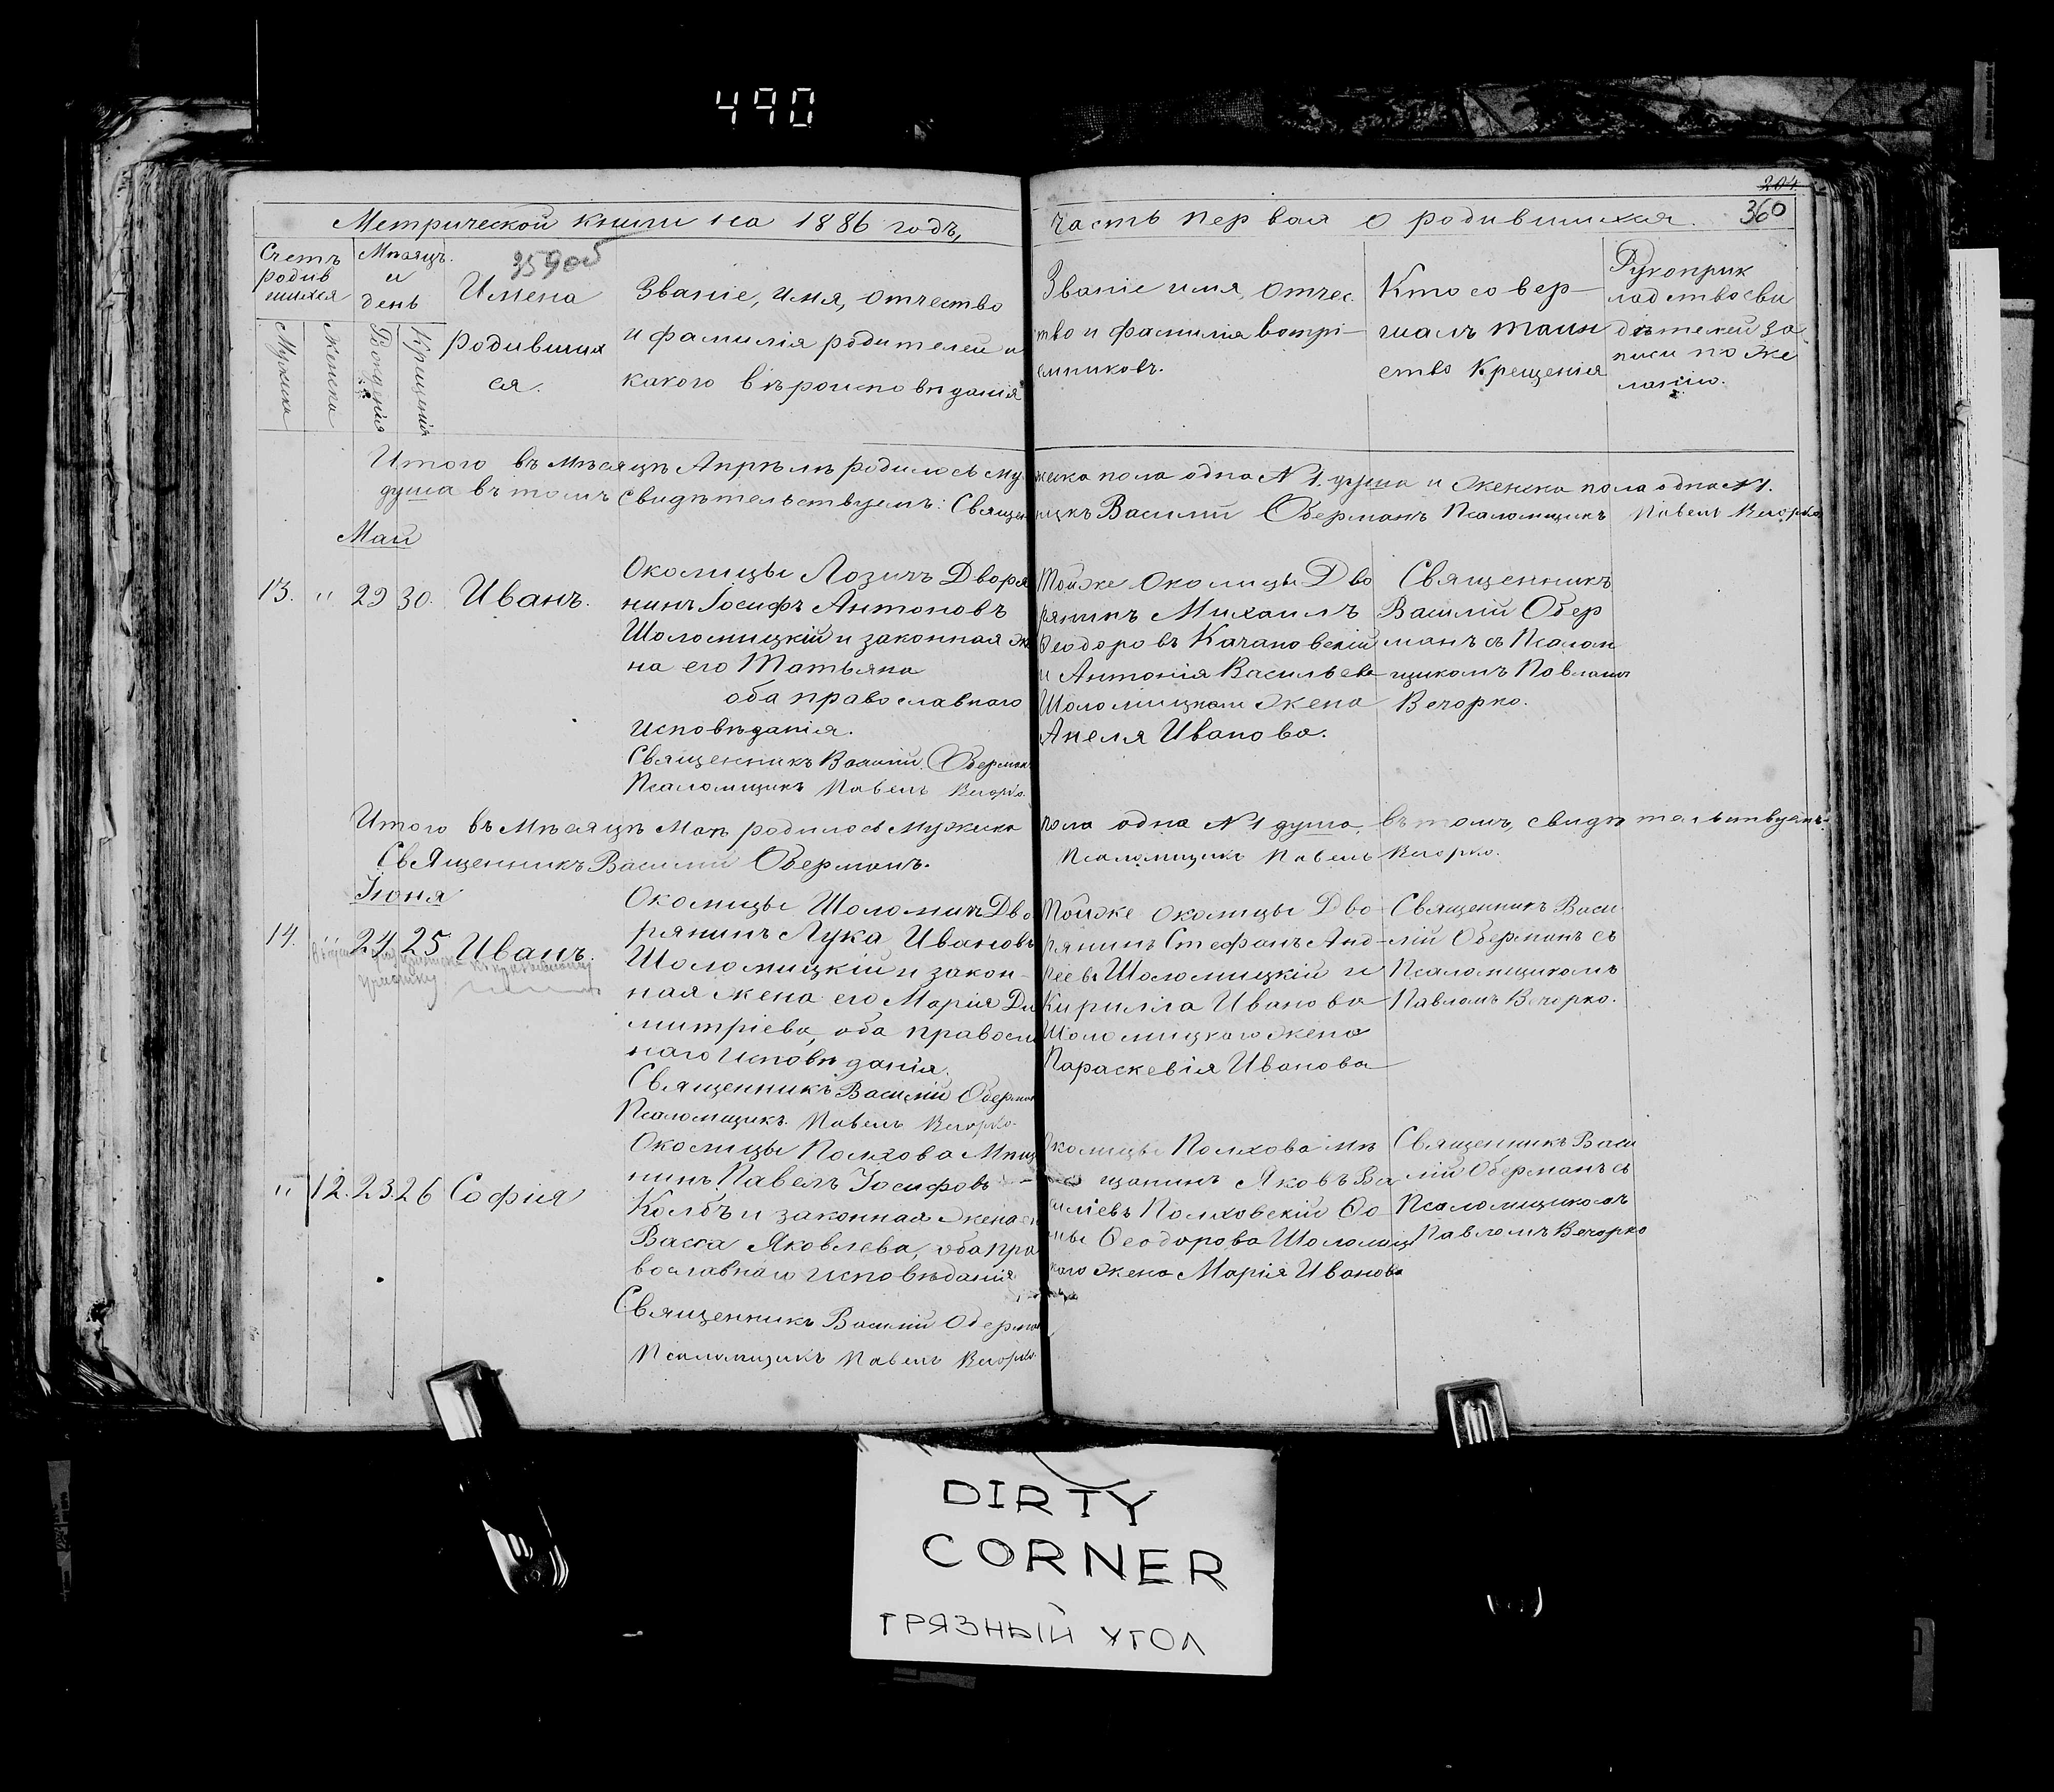 490
204
360
Метрической книги на 1886 годъ,
часть первая о родившихся.
359об
Счетъ
родив
шихся
Мѣсяцъ
и
день
Мужска
Женска
Рожденія
Крещенія
Имена
родивших
ся.
Званіе, имя, отчество
и фамилія родителей и
какого вѣроисповѣданія
Званіе имя, отчес.
тво и фамилія воспрі-
емниковъ.
Кто совер-
шалъ таин
ство Крещенія
Рукоприк
ладство сви
дѣтелей за
писи по же
ланію.
Итого въ мѣсяцѣ Апрѣлѣ родилось му
жеска пола одна N 1. душа и женска пола одна N 1.
душа въ томъ свидѣтельствуемъ: Священ
никъ Василій Оберманъ Псаломщикъ Павелъ Вечорко
Май
13. " 29 30. Иванъ.
Околицы Лозичъ Дворя
нинъ Іосифъ Антоновъ
Шоломицкій и законная же
на его Татьяна
оба православнаго
исповѣданія.
Священникъ Василій Оберман
Псаломщикъ Павелъ Вечорко.
Тойже Околицы Дво
рянинъ Михаилъ
Ѳеодоровъ Качановскій
и Антонія Васильева
Шоломицкаго жена
Анеля Иванова.
Священникъ
Василій Обер
манъ съ Псалом
щикомъ Павломъ
Вечорко.
Итого въ мѣсяцѣ Маѣ родилось мужска
пола одна N 1 душа, въ томъ, свидѣтельствуемъ:
Священникъ Василій Оберманъ.
Псаломщикъ Павелъ Вечорко.
Іюня
14. " 24 25 Иванъ.
Околицы Шоломичъ Дво
рянинъ Лука Ивановъ
Шоломицкій и закон-
ная жена его Марія Ди
митріева, оба правосл
наго исповѣданія.
Священникъ Василій Оберман
Псаломщикъ Павелъ Вечорко.
Тойже околицы Дво-
рянинъ Стефанъ Анд-
реевъ Шоломицкій и
Кирилла Иванова
Шоломицкаго жена
Параскевія Иванова
Священникъ Васи
лій Оберманъ съ
Псаломщикомъ
Павломъ Вечорко.
" 12. 23. 26 София
Околицы Полхова Мѣщ
нинъ Павелъ Іосифовъ
Колбъ и законная жена его
Васса Яковлева, оба пра
вославнаго исповѣданія
Священникъ Василій Оберман
Псаломщикъ Павелъ Вечорко.
Околицы Полхова мѣ
щанинъ Яковъ Ва
силіевъ Полховскій Ѳо
мы Ѳеодорова Шоломиц
каго жена Марія Иванова
Священникъ Васи
лій Оберманъ съ
Псаломщикомъ
Павломъ Вечорко
DIRTY
CORNER
ГРЯЗНЫЙ УГОЛ